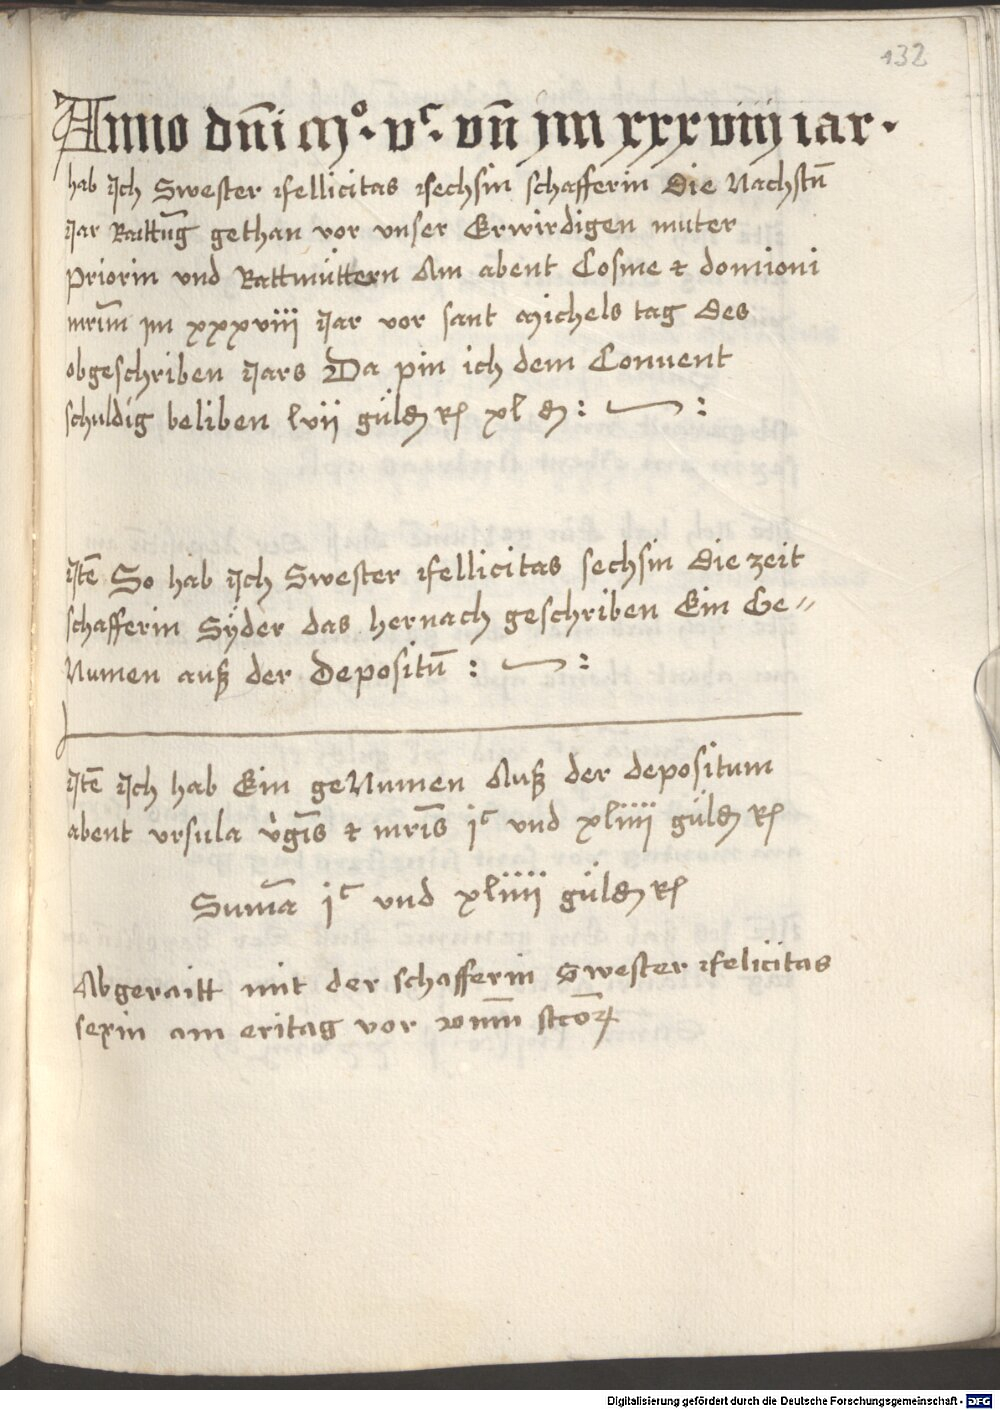 132
Anno dn̄i mͦ· vᶜ· vn̄ jm xxxviiij iar·
hab Jch Swester ffellicitas ffechsin schafferin Die Nachstn̄
Jar Raittūg gethan vor vnser Erwirdigen muter
Priorin vnd Rattmüttern Am abent Cosme et domioni
mrīm jm xxxviii Jar vor sant Michels tag Des
obgeschriben Jars Da pin ich dem Conuent
schuldig beliben lvii güld Rł xl d : :
Jtē So hab Jch Swester ffellicitas sechsin Die zeit
schafferin Sÿder das hernach geschriben Ein Ge〃
Numen auß der Depositū : :
Jtē Jch hab Ein geNumen Auß der depositum
abent vrsula v̓gīs et mrīs jᶜ vnd xliiij güld Rł
Sum̄a jᶜ vnd xliiij güld Rł
Abgeraitt mit der schafferin Swester ffelicitas
sexin am eritag vor om̄m stcōꝝ
Digitalisierung gefördert durch die Deutsche Forschungsgemeinschaft - DFG